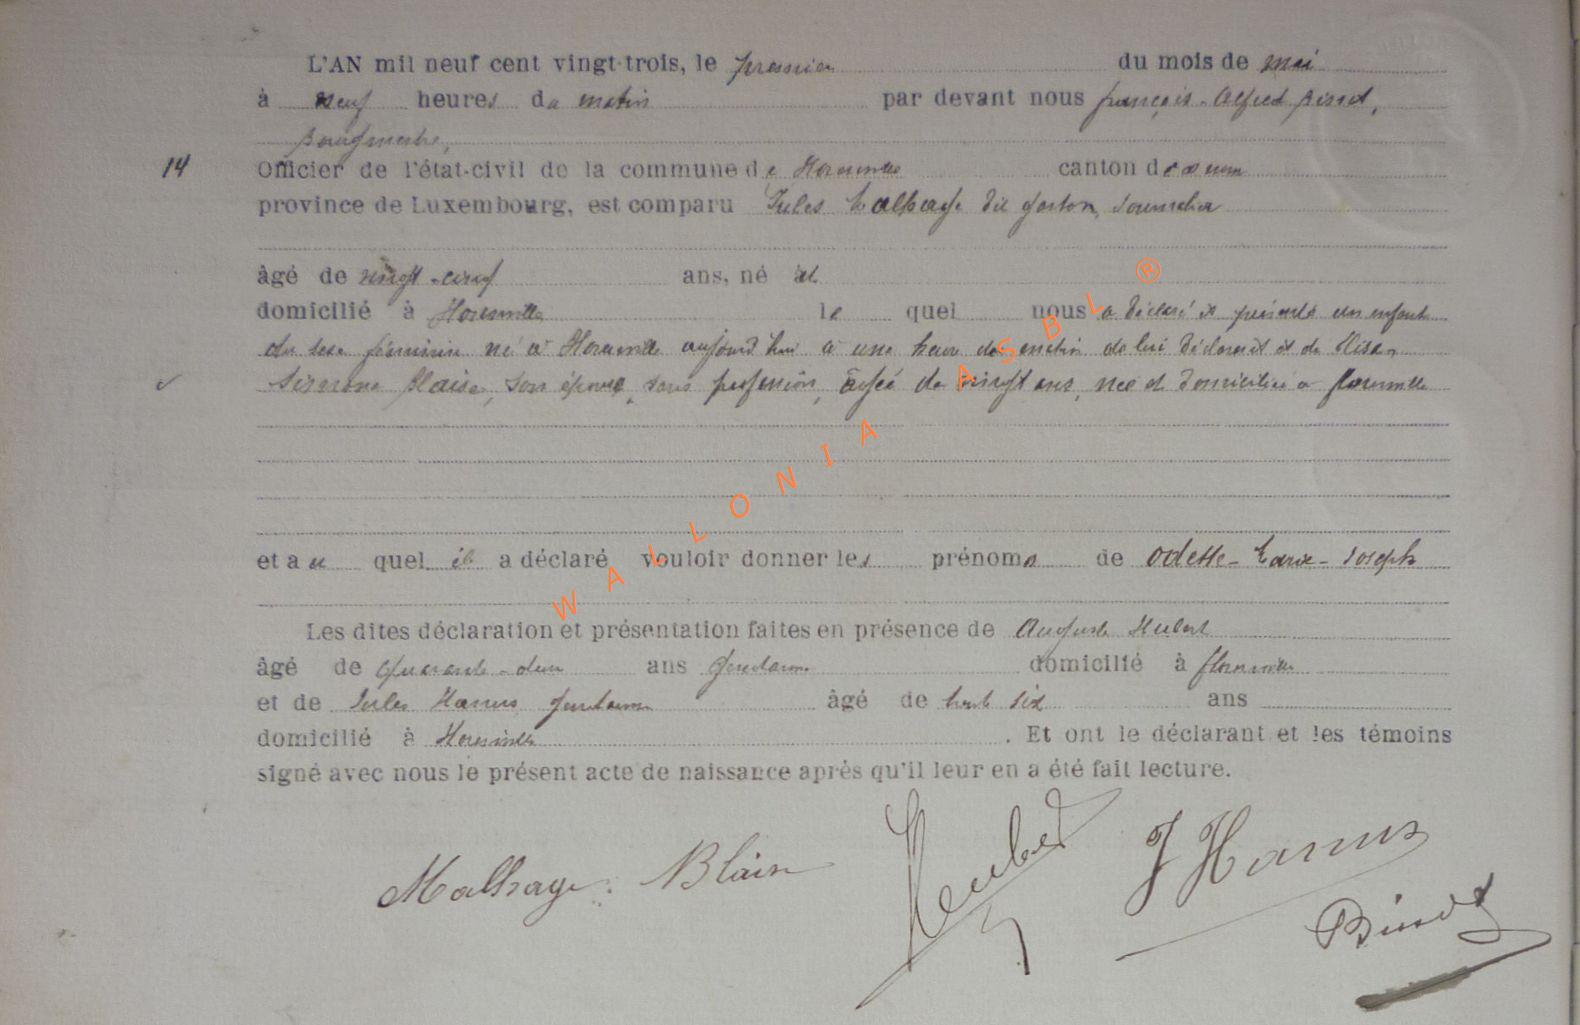 L'AN mil neuf cent vingt-trois, le premier du mois de mai
à neuf heures du matin par devant nous françois-Alfred Binot,
Bourgmestre,
14 Officier de l'état-civil de la commune de Florenville canton de
province de Luxembourg, est comparu Jules Malhage dit gaston,
âgé de vingt-cinq ans, né et
domicilié à Florenville lequel nous a déclaré et présenté un enfant
du sexe féminin né à Florenville aujourd'hui à une heure du matin de lui déclarant et de Elise-
Simone Blaise, son épouse, sans profession, âgée de vingt ans, née et domiciliée à florenville
et auquel il a déclaré vouloir donner les prénoms de Odette-Marie-Joseph
Les dites déclaration et présentation faites en présence de Auguste Hubert
âgé de quarante-deux ans gendarme domicilié à florenville
et de Jules Hanus gendarme âgé de trente six ans
domicilié à Florenville. Et ont le déclarant et les témoins
signé avec nous le présent acte de naissance après qu'il leur en a été fait lecture.
Malhage. Blaise Hubert J Hanus
Binot
WALLONIA ASBL ®